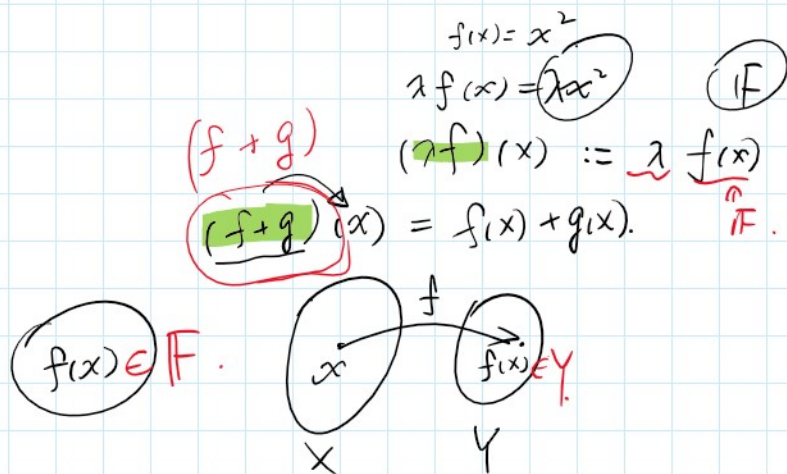 f(x) = x²
λ f(x) = λx²
𝔽
(f + g)
(λf)(x) := λ f(x)
∈
𝔽.
(f+g)(x) = f(x) + g(x).
f
f(x) ∈ 𝔽.
x
f(x) ∈ Y
X
Y